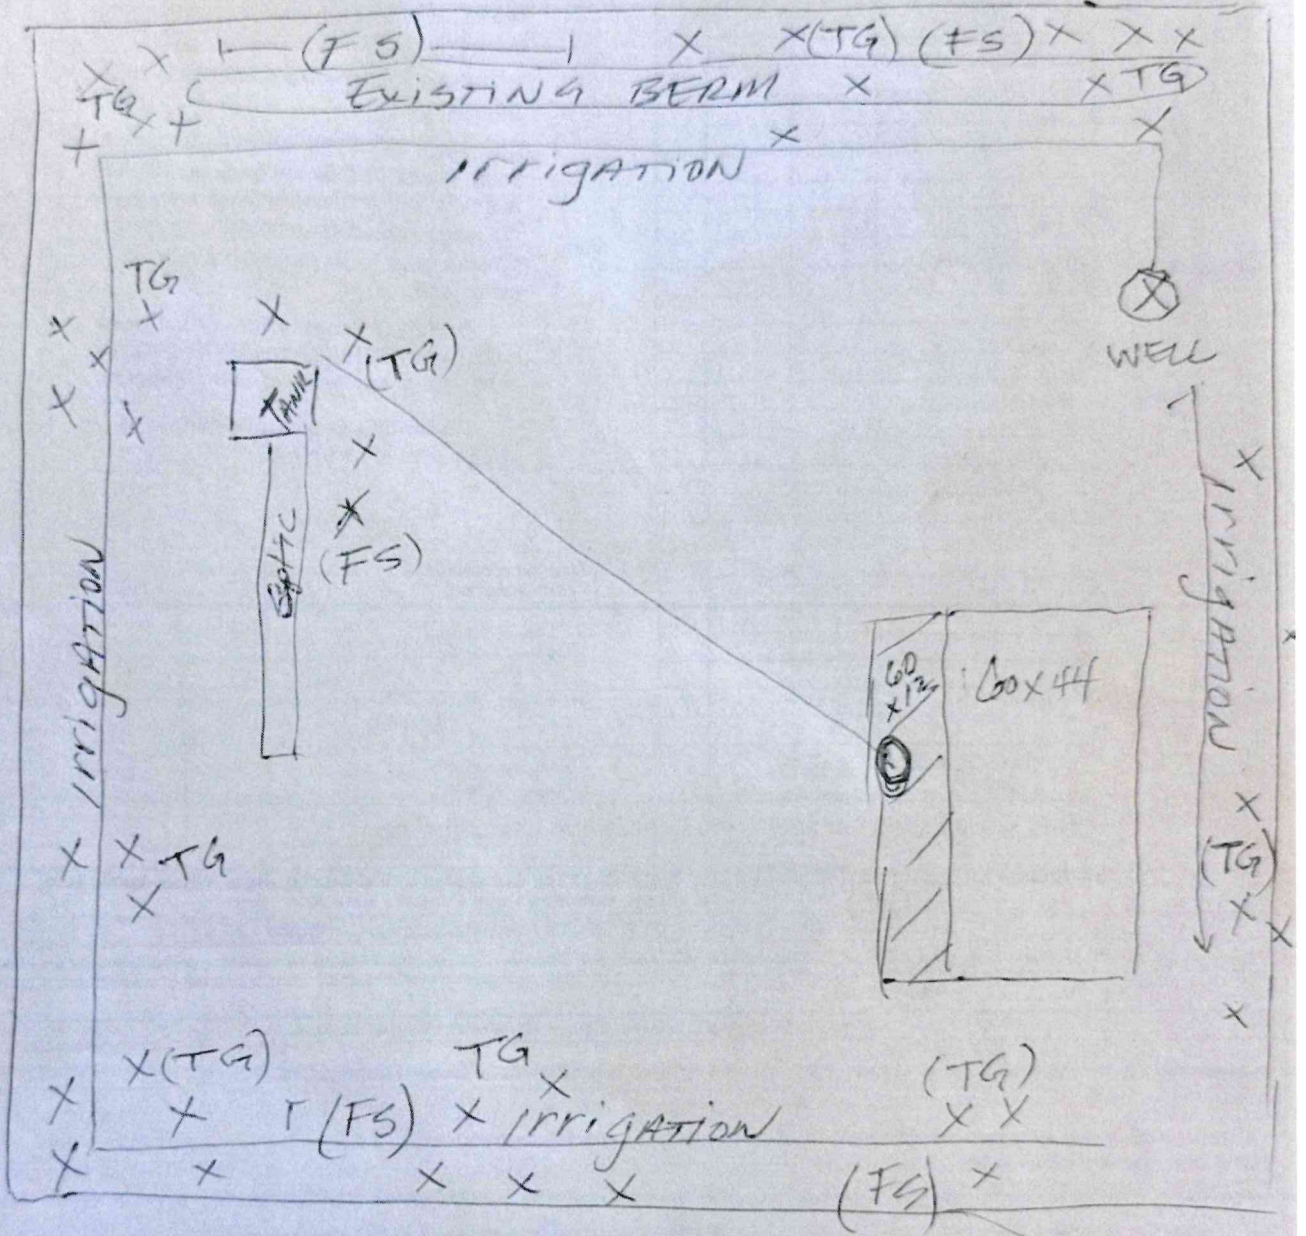 (FS) X X(TG) (FS) X X X
X X
EXISTING BERM X X TG
TG X +
+ X X
IrrigATION
TG
X X X X
(TG)
X
WELL
TANK
X X X
X X
Septic
X
(FS)
IrrigATION
IrrigATION
X
60
x12
60x44
X
X X TG
(TG)
X X X
X
X(TG) TG X
(TG)
X X (FS) X IrrigATION X X
X X X X X (FS) X